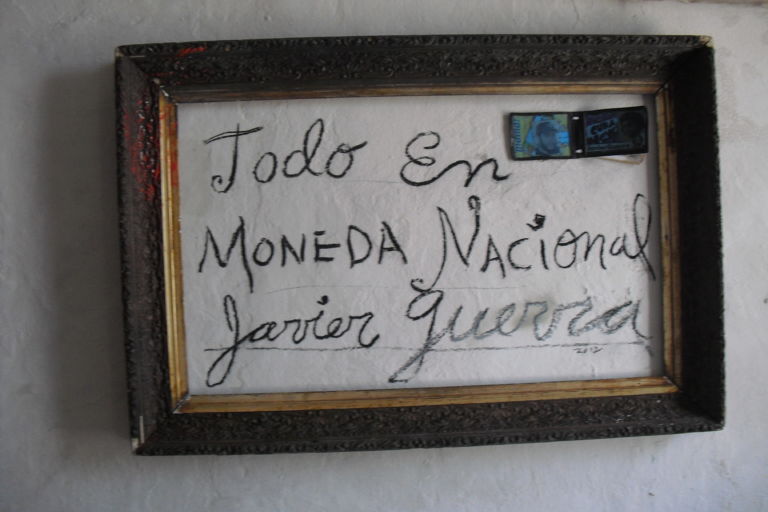 Todo En
MONEDA Nacional
Javier Guerra
2012